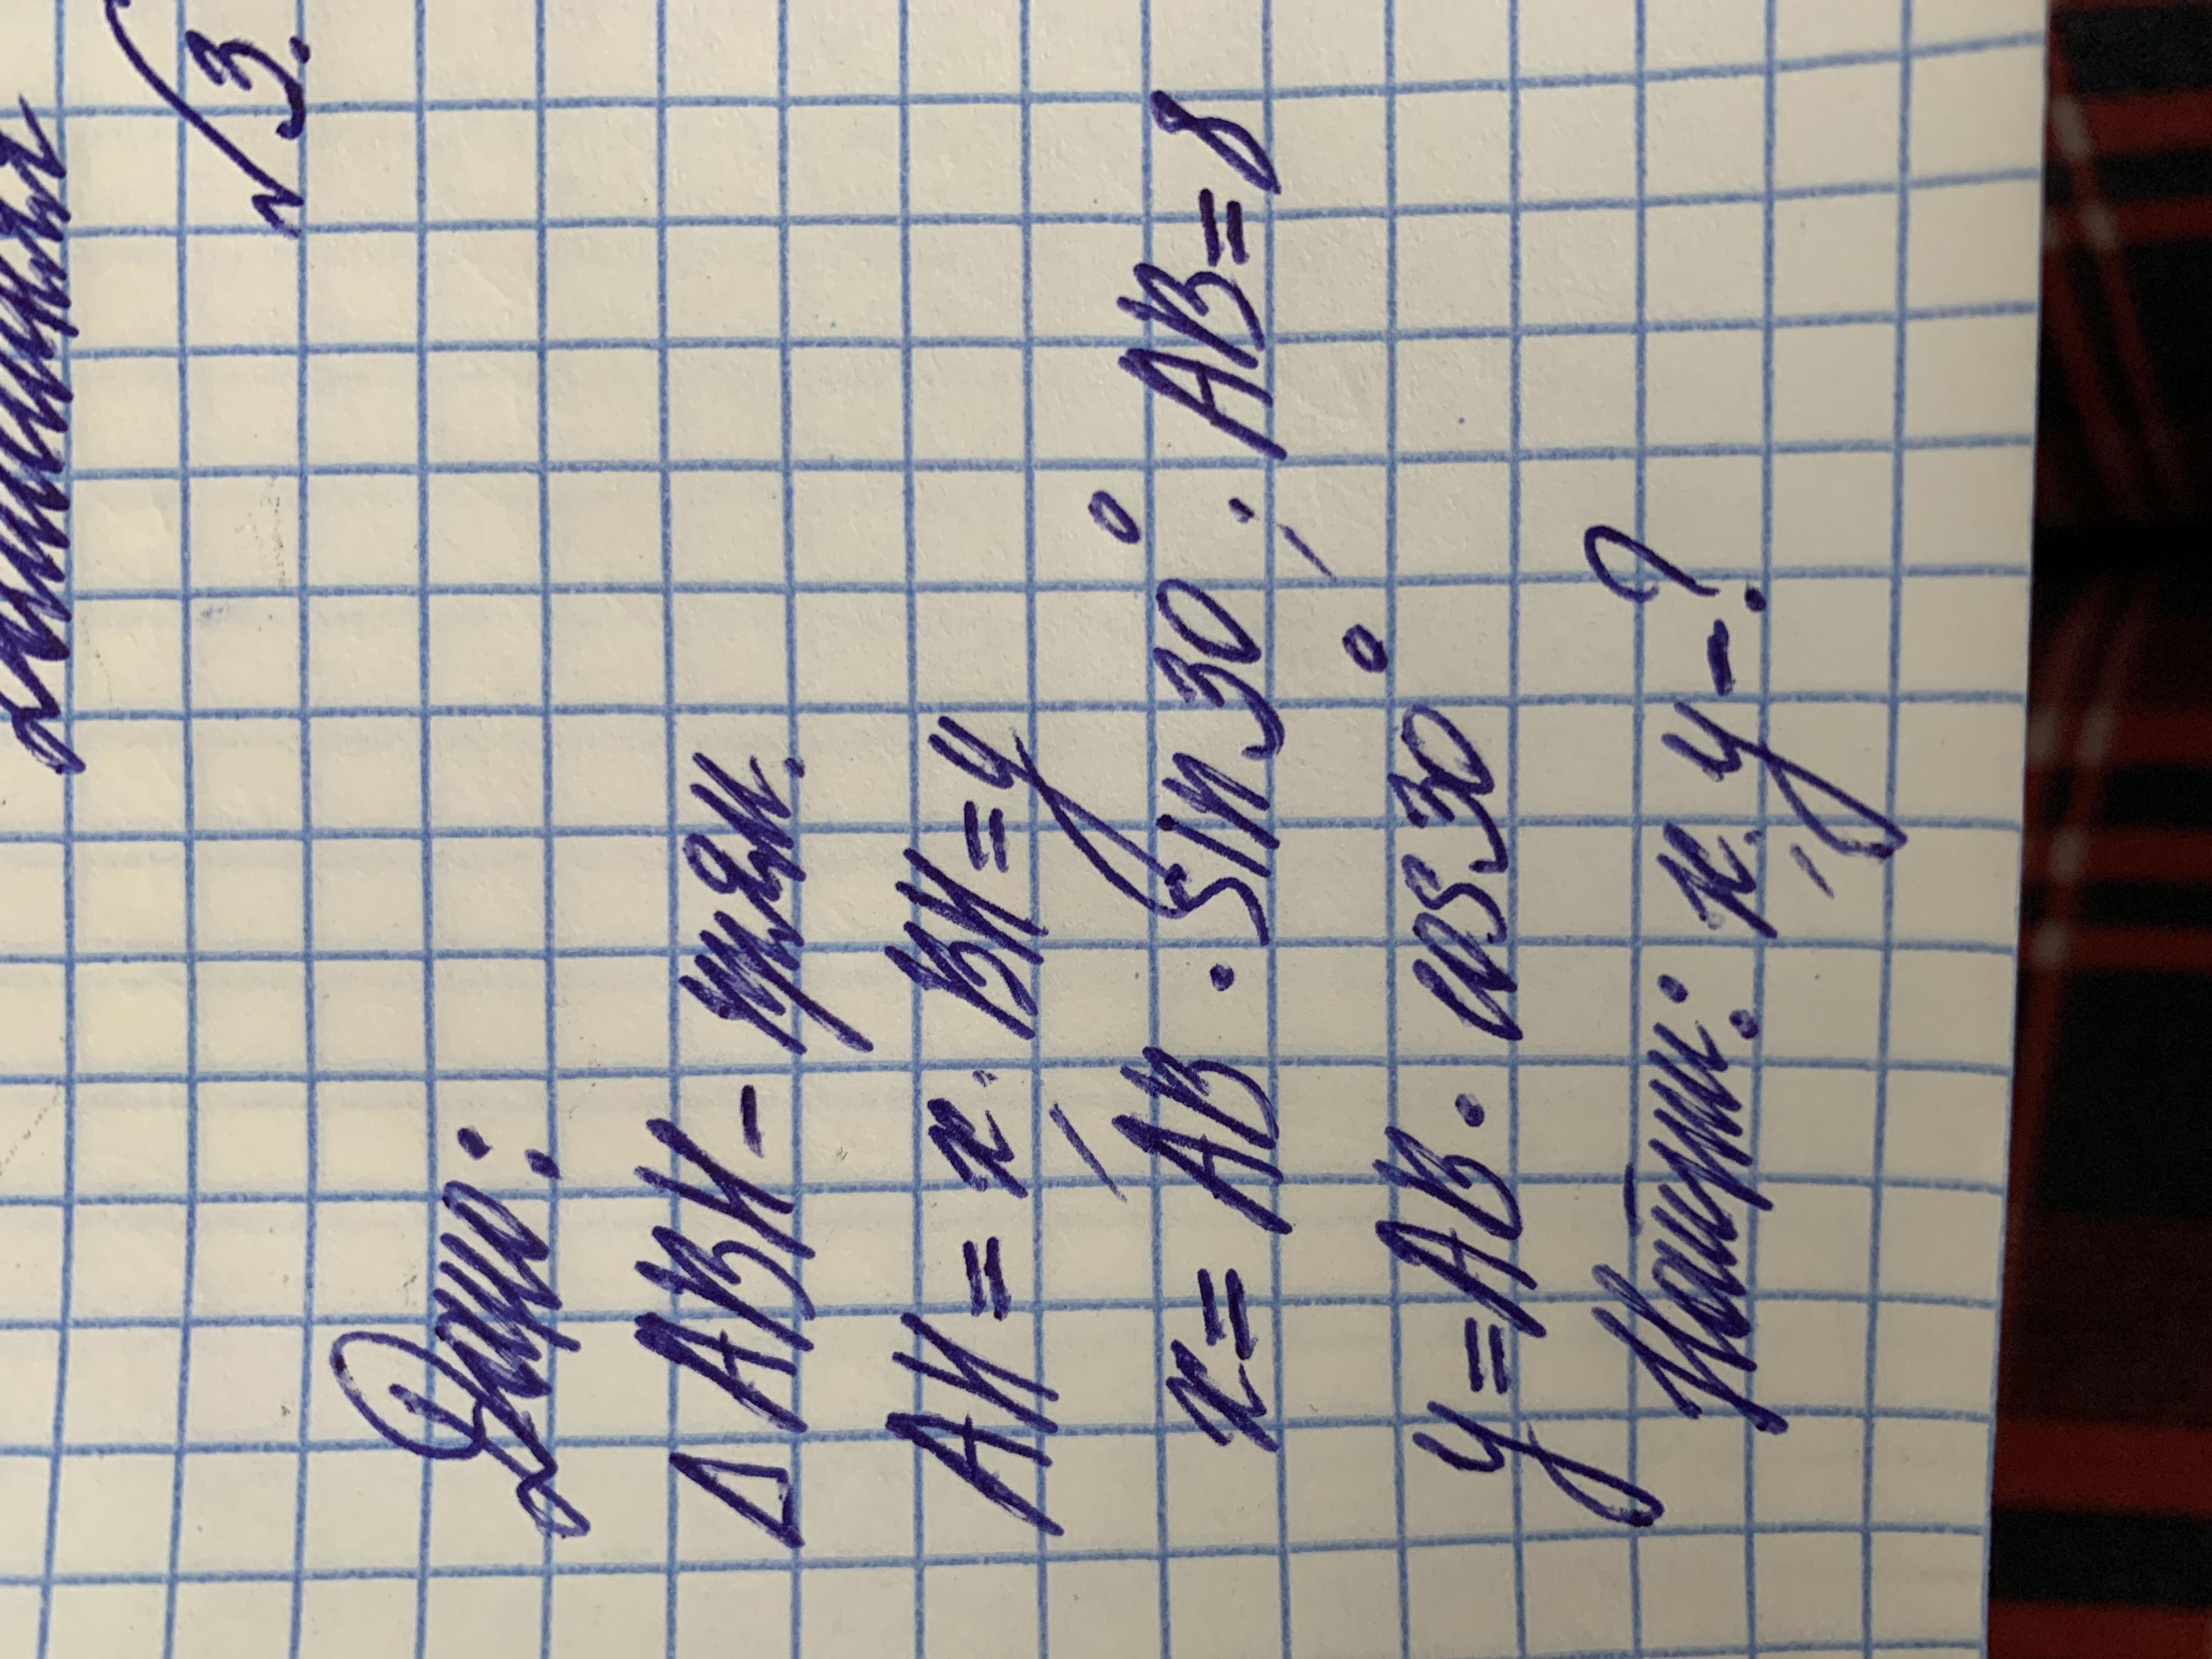 №3.
Дано:
△ ABH - прям.
AH = x, BH = y
x = AB · sin 30°, AB = 8
y = AB · cos 30°
Найти: x, y - ?